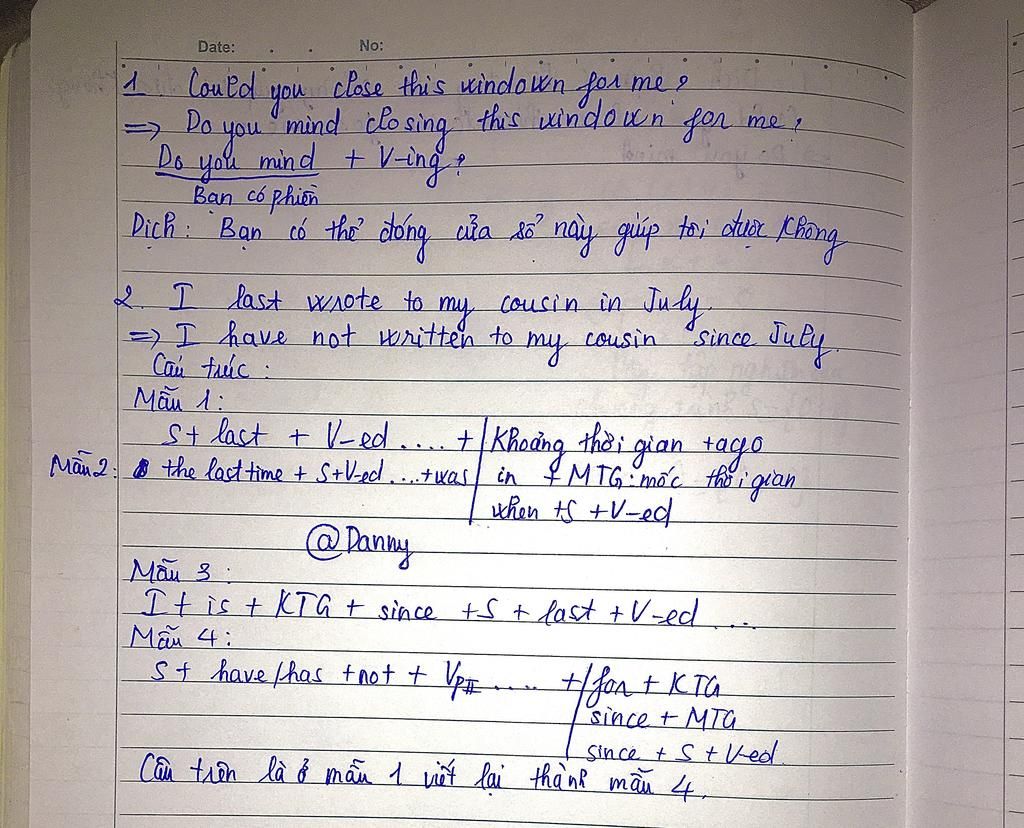 Date: . . No:
1. Could you close this windown for me?
=> Do you mind closing this windown for me?
Do you mind + V-ing?
Bạn có phiền
Dịch: Bạn có thể đóng cửa sổ này giúp tôi được không
2. I last wrote to my cousin in July.
=> I have not written to my cousin since July.
Cấu trúc:
Mẫu 1:
S + last + V-ed .... + Khoảng thời gian + ago
Mẫu 2: the last time + S + V-ed ... + was in + MTG: mốc thời gian
when + S + V-ed
@Danny
Mẫu 3:
I + is + KTG + since + S + last + V-ed ...
Mẫu 4:
S + have/has + not + VpII ..... + for + KTG
since + MTG
since + S + V-ed
Câu trên là ở mẫu 1 viết lại thành mẫu 4.